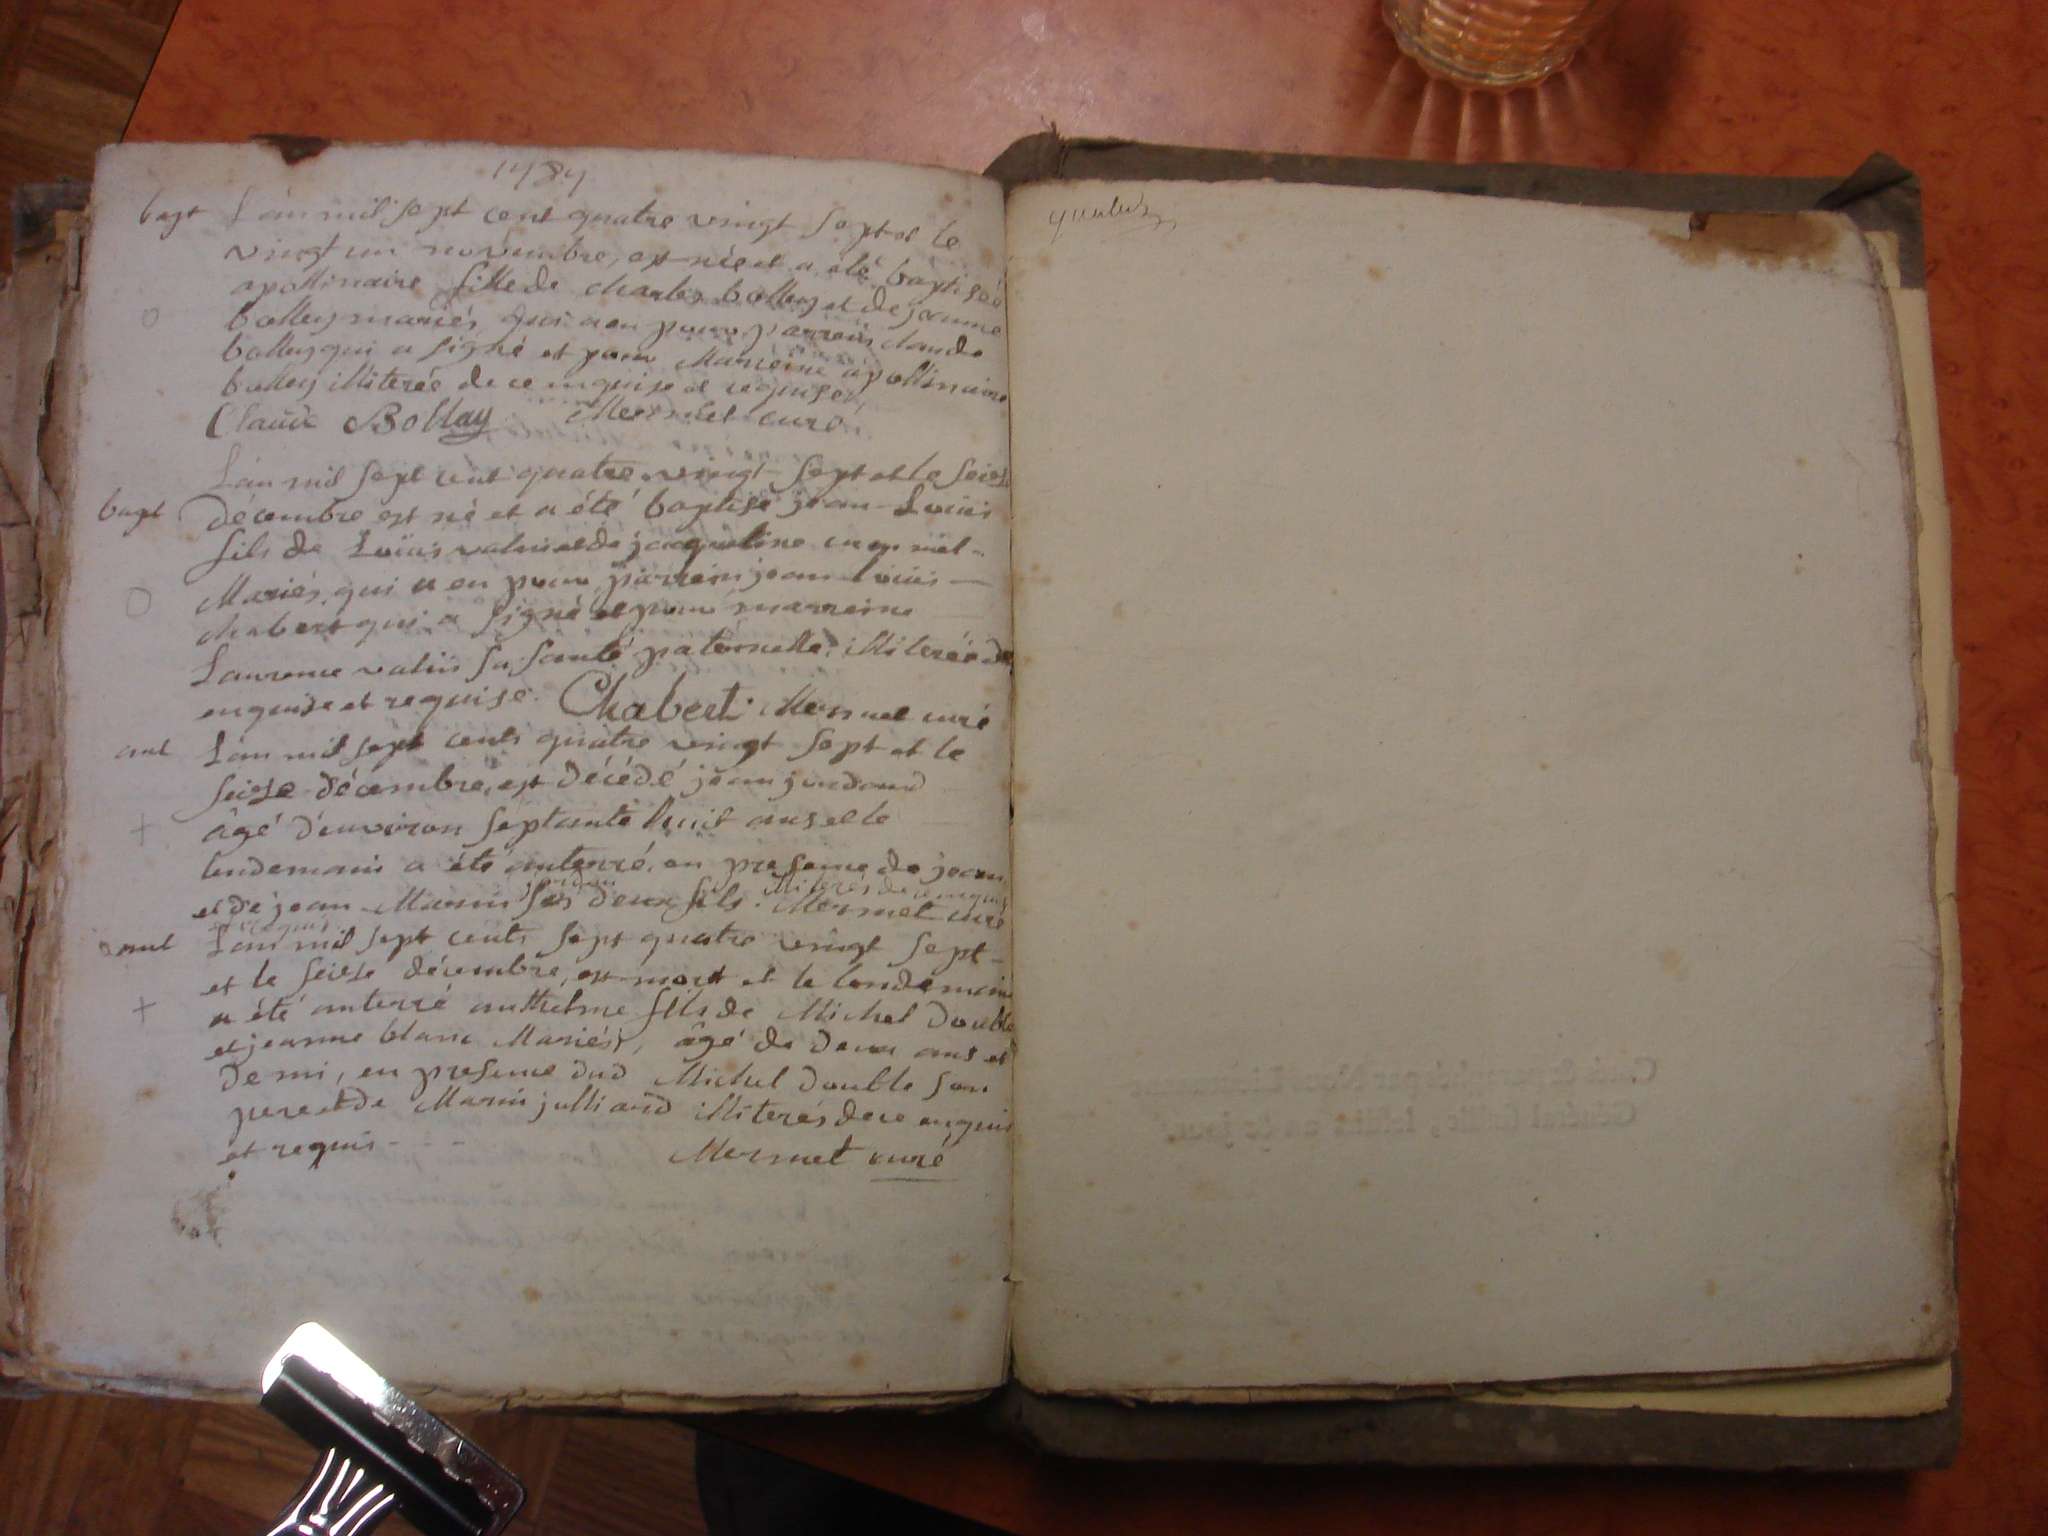 1787
bapt L'an mil sept cent quatre vingt sept et le
vingt un novembre, est née et a été baptisée
apollinaire fille de charles bolley et de jeanne
bolley mariés, qui a eu pour parrein claude
bolley qui a signé et pour Marreine apollinaire
bolley illiterée de ce enquise et requise
Claude Bollay Mermet curé
L'an mil sept cent quatre vingt sept et le seise
bapt décembre est né et a été baptisé jean Louis
fils de Louis valin et de jacqueline
Mariés, qui a eu pour parrein jean louis
chabert qui a signé et pour marreine
Laurence valin sa tante paternelle illiterée de
enquise et requise. Chabert. Mermet curé
ant L'an mil sept cents quatre vingt sept et le
seise décembre, est décédé jean
âgé d'environ septante huit ans et le
lendemain a été anterré, en presence de jean
illiterés de ce enquis
et de jean Marin ses deux fils. Mermet curé
et requis
ant L'an mil sept cents sept quatre vingt sept
et le seise décembre, est mort et le lendemain
a été anterré anthelme fils de Michel double
et jeanne blanc Mariés, âgé de deux ans et
demi, en presence dud Michel double son
pere et de Marin julliand illiterés de ce enquis
et requis - - -
Mermet curé